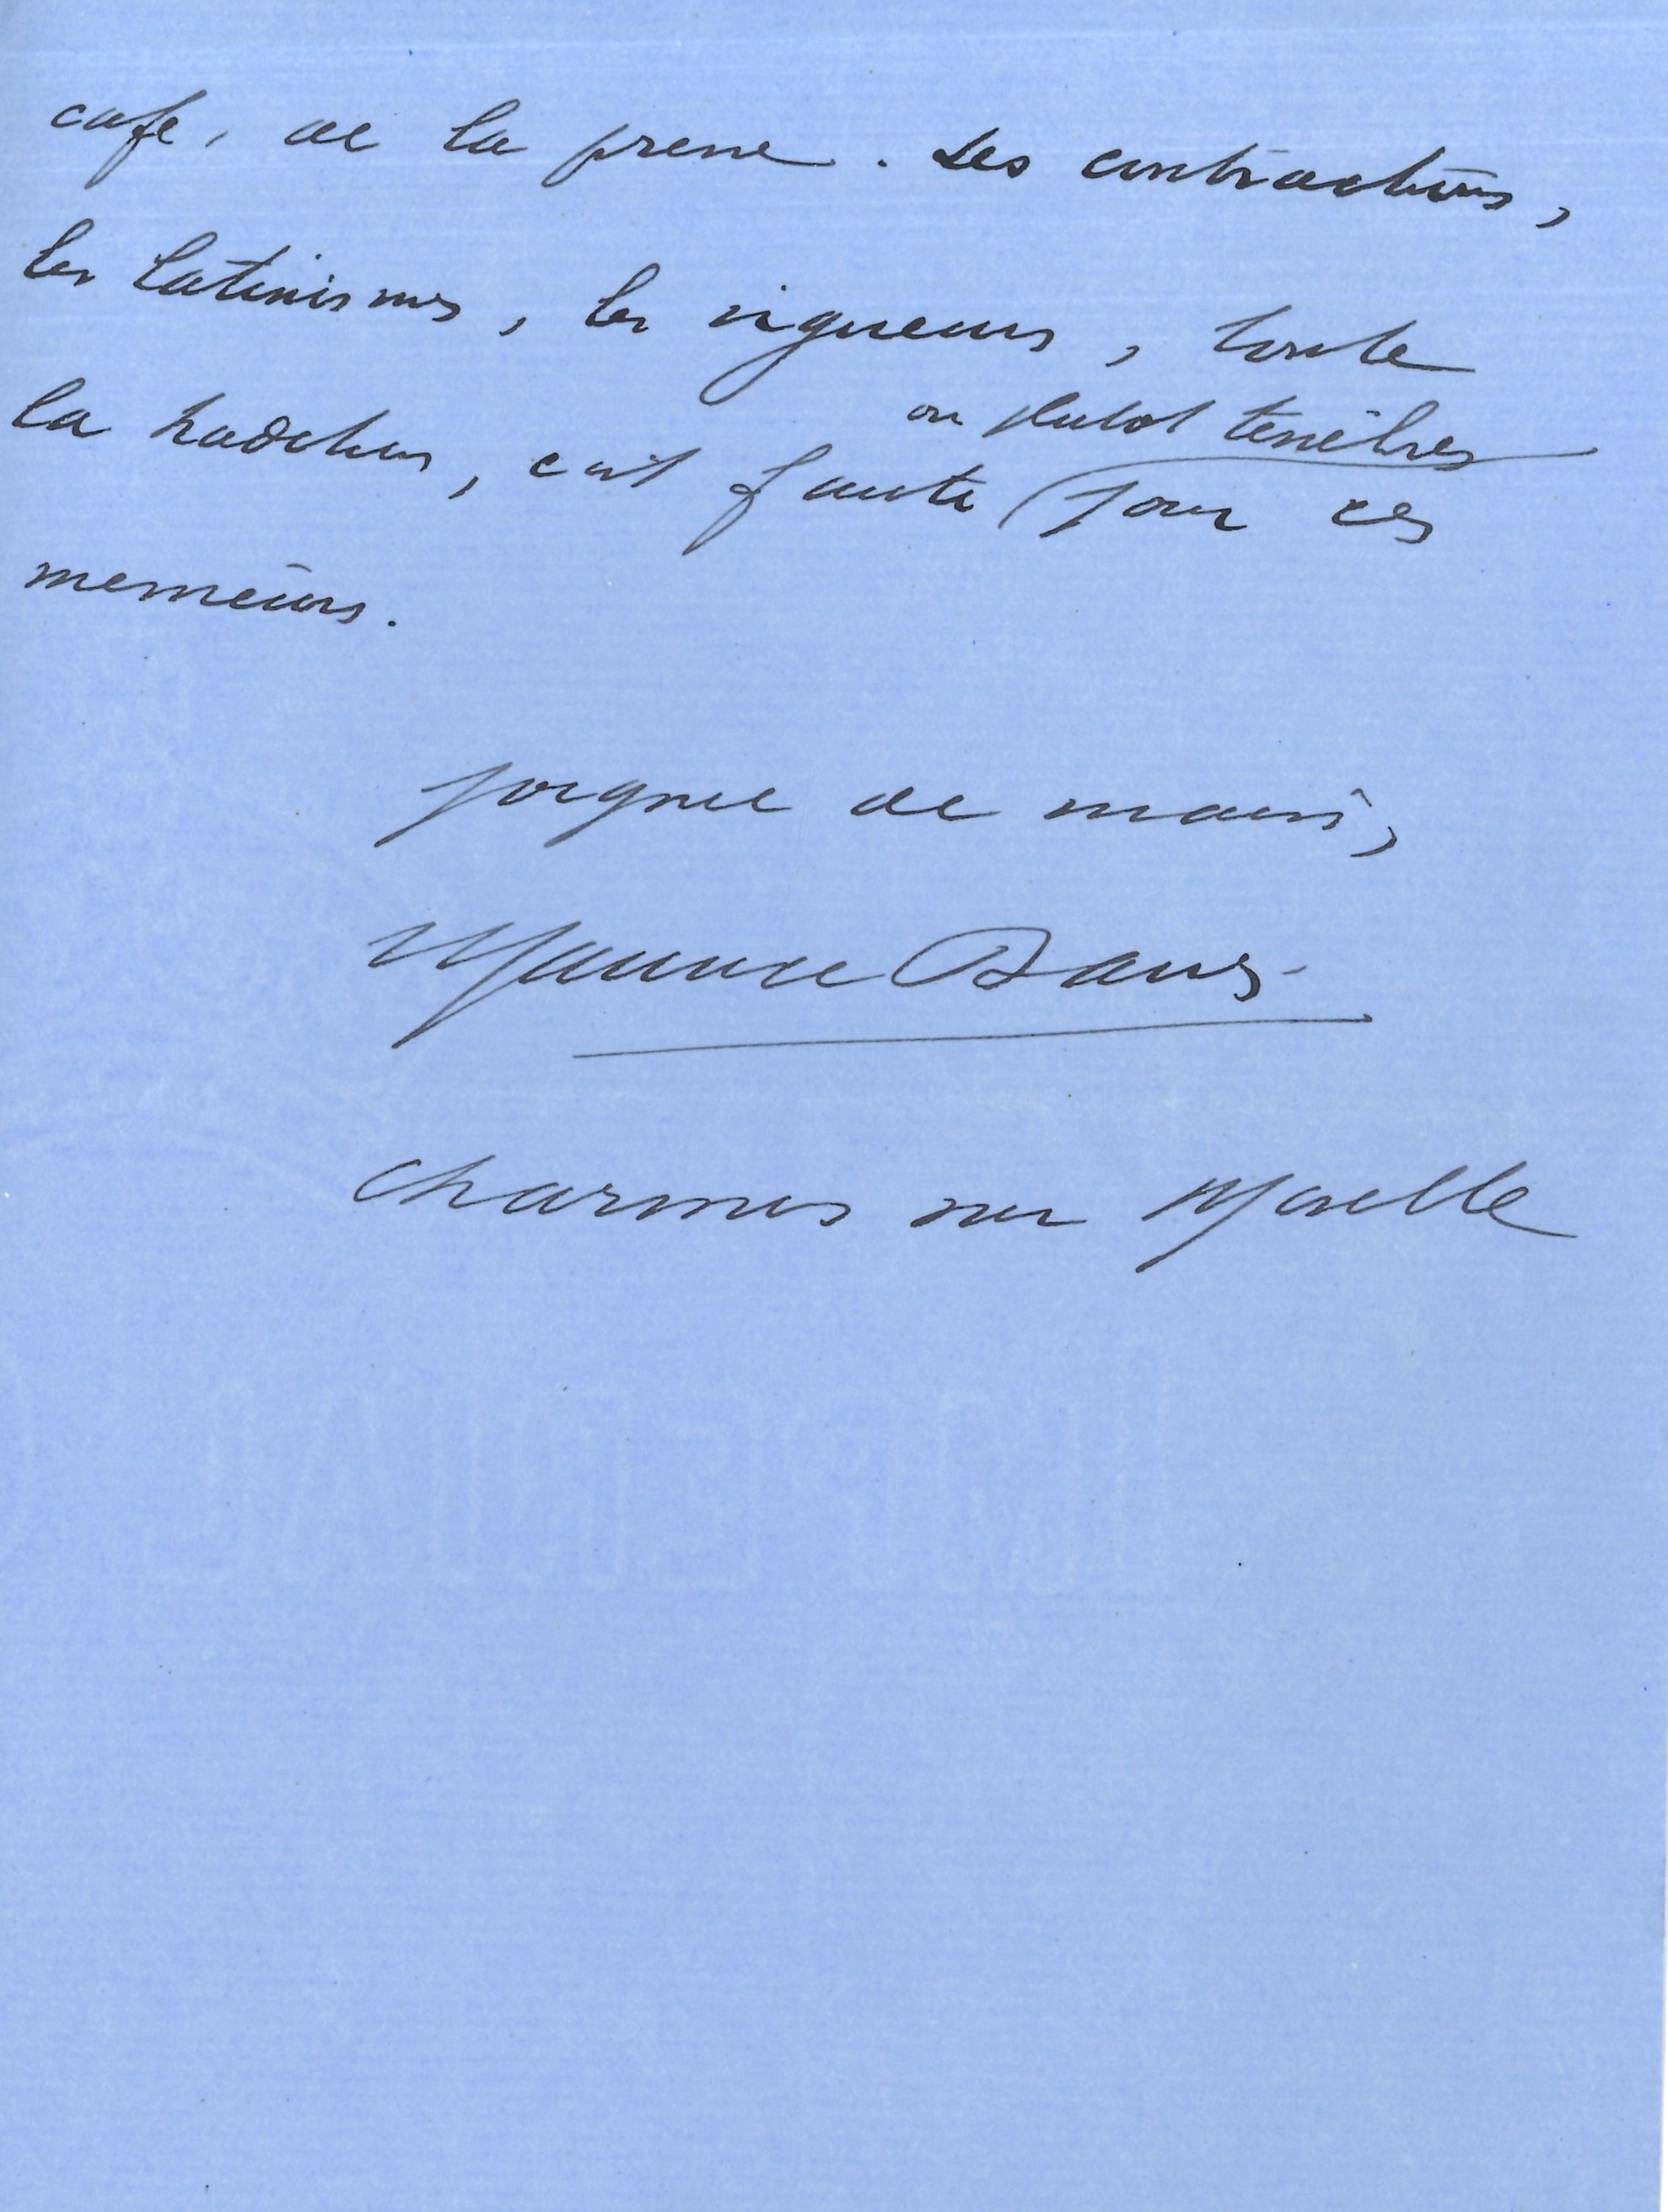 café, de la presse. Les contractions,
les latinismes, les vigueurs, toute
la tradition, c'est faute
ou plutôt ténèbres
pour ces
messieurs.
poignée de mains,
Maurice Barrès
Charmes sur Moselle